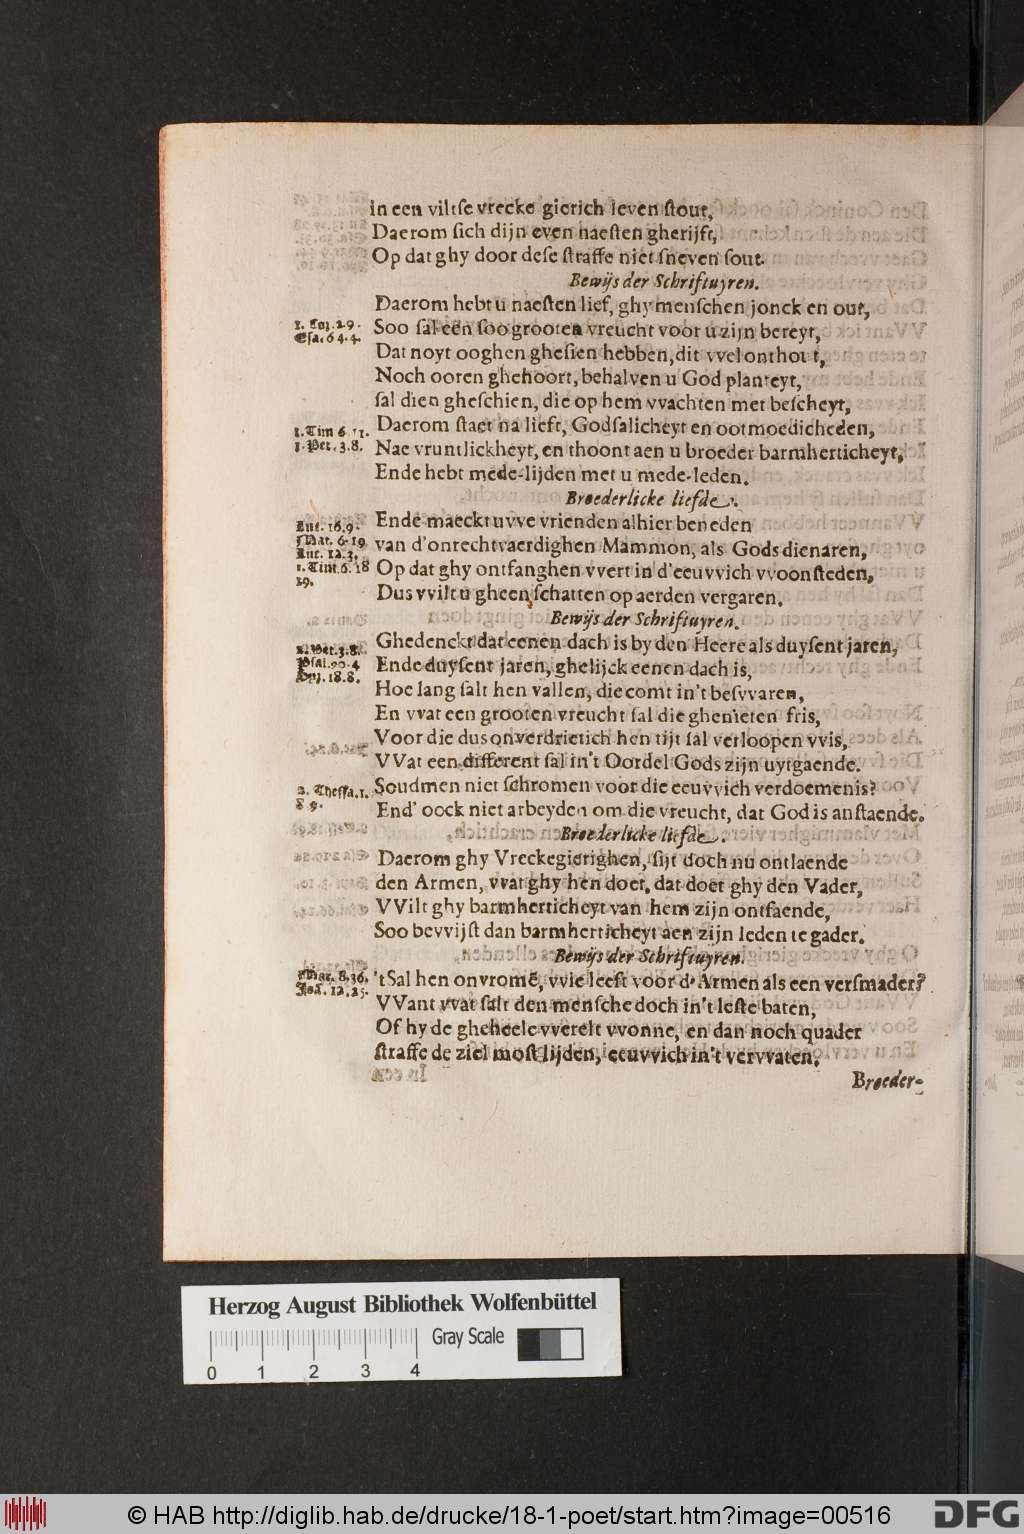 in een viltſe vrecke gierich leven ſtout,
Daerom ſich dijn even naeſten gherijft,
Op dat ghy door deſe ſtraffe niet ſneven ſout.
Bewijs der Schriftuyren.
Daerom hebt u naeſten lief, ghy menſchen jonck en out,
1. Coꝛ. 2.9. Soo ſal een ſoo grooten vreucht voor u zijn bereyt,
Eſa. 64.4. Dat noyt ooghen gheſien hebben, dit vvel onthout,
Noch ooren ghehoort, behalven u God planteyt,
ſal dien gheſchien, die op hem vvachten met beſcheyt,
1. Tim 6.11. Daerom ſtaet na lieft, Godſalicheyt en ootmoedicheden,
1. Pet. 3.8. Nae vruntlickheyt, en thoont aen u broeder barmherticheyt,
Ende hebt mede-lijden met u mede-leden.
Broederlicke liefde.
Luc. 16.9. Ende maeckt uvve vrienden alhier beneden
Mat. 6.19 van d'onrechtvaerdighen Mammon, als Gods dienaren,
Luc. 12.3.
1. Tim. 6.18 Op dat ghy ontfanghen vvert in d'eeuvvich vvoonſteden,
19. Dus vvilt u gheen ſchatten op aerden vergaren.
Bewijs der Schriftuyren.
2. Pet. 3.8. Ghedenckt dat eenen dach is by den Heere als duyſent jaren,
Pſal. 90.4 Ende duyſent jaren, ghelijck eenen dach is,
18.8. Hoe lang ſalt hen vallen, die comt in't beſvvaren,
En vvat een grooten vreucht ſal die ghenieten fris,
Voor die dus onverdrietich hen tijt ſal verloopen vvis,
VVat een different ſal in't Oordel Gods zijn uytgaende.
2. Theſſa. 1. Soudmen niet ſchromen voor die eeuvvich verdoemenis?
8 9. End' oock niet arbeyden om die vreucht, dat God is anſtaende.
Broederlicke liefde.
Daerom ghy Vreckegierighen, ſijt doch nu ontlaende
den Armen, vvat ghy hen doet, dat doet ghy den Vader,
VVilt ghy barmherticheyt van hem zijn ontfaende,
Soo bevvijſt dan barmherticheyt aen zijn leden te gader.
Bewijs der Schriftuyren.
Mar. 8.36. 'tSal hen onvromē, vvie leeft voor d'Armen als een verſmader?
Joā. 12.25. VVant vvat ſalt den menſche doch in't leſte baten,
Of hy de gheheele vverelt vvonne, en dan noch quader
ſtraffe de ziel moſt lijden, eeuvvich in't vervvaten.
Broeder-
Herzog August Bibliothek Wolfenbüttel
Gray Scale
0 1 2 3 4
© HAB http://diglib.hab.de/drucke/18-1-poet/start.htm?image=00516
DFG